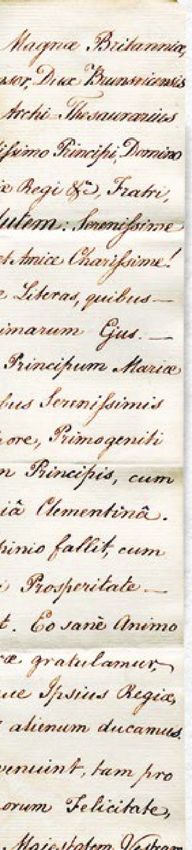 Magnæ Britanniæ,
nsor, Dux Brunsvicensis
Archi-Thesaurarius
issimo Principi, Domino
æ Regi &c, Fratri,
lutem: Serenissime
et Amice Charissime!
Literas, quibus —
imarum Ejus. —
Principum Mariæ
bus Serenissimis
ore, Primogeniti
n Principis, cum
iâ Clementinâ.
pinio fallit, cum
i Prosperitate —
t. Eo sanè Animo
æ gratulamur,
ue Ipsius Regiæ,
alienum ducamus.
veniunt, tam pro
orum Felicitate,
Majestatem Vestram